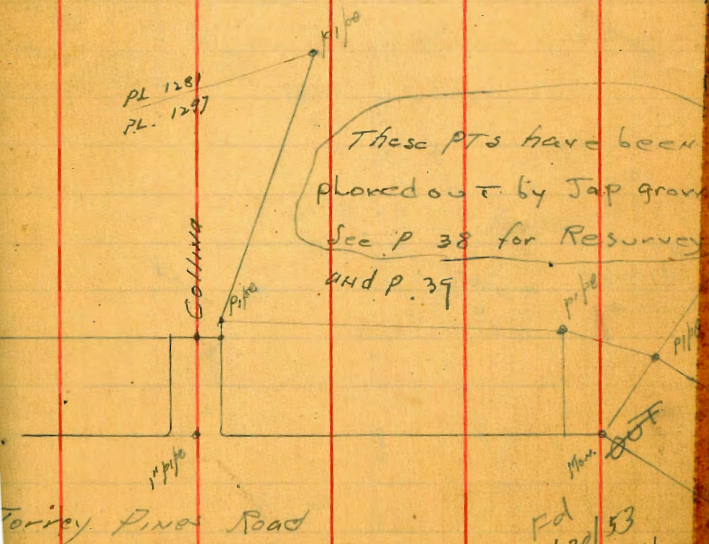 pipe
PL 1281
PL. 1297
These PTs have been
plowed out by Jap grow
See P 38 for Resurvey
and P. 39
Collina
pipe
pipe
pipe
1" pipe
Mon. OUT
Torrey Pines Road
Fd
/53